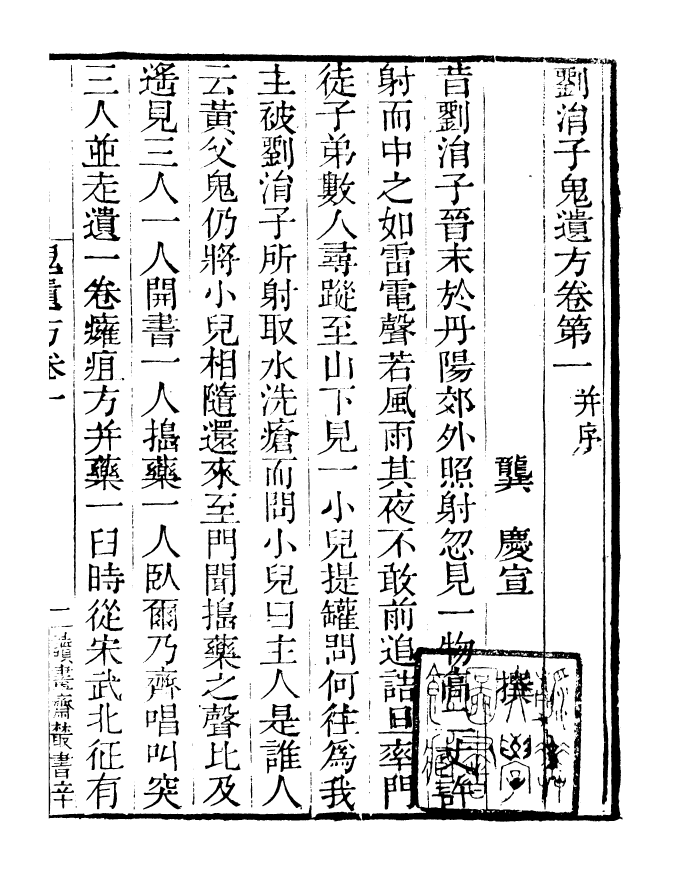 劉涓子鬼遺方卷第一 并序
龔 慶宣 撰
昔劉涓子晉末於丹陽郊外照射忽見一物高二丈許
射而中之如雷電聲若風雨其夜不敢前追詰旦率門
徒子弟數人尋蹤至山下見一小兒提罐問何往爲我
主被劉涓子所射取水洗瘡而問小兒曰主人是誰人
云黃父鬼仍將小兒相隨還來至門聞搗藥之聲比及
遙見三人一人開書一人搗藥一人臥爾乃齊唱叫突
三人並走遺一卷癰疽方并藥一臼時從宋武北征有
鬼遺方卷一
二
書齋叢書辛